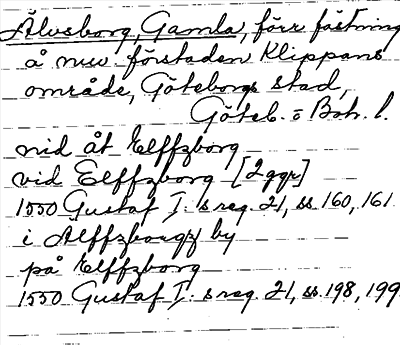 Älvsborg, Gamla, förr fästning
å nuv. förstaden Klippans
område, Göteborgs stad,
Göteb. o Boh. l.
nid åt Elffzborg
vid Elffzborg [2 ggr]
1550 Gustaf I:s reg. 21, ss. 160, 161
i Alffzborgz by
på Elffzborg
1550 Gustaf I:s reg. 21, ss. 198, 199